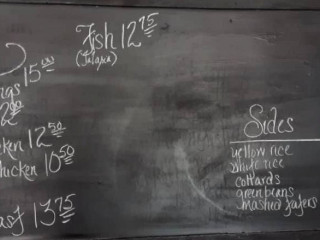 Fish 12 75
(Talapia)
15 00
ngs
2 00
ken 12 50
hicken 10 50
13 75
Sides
yellow rice
white rice
collards
green beans
mashed taters